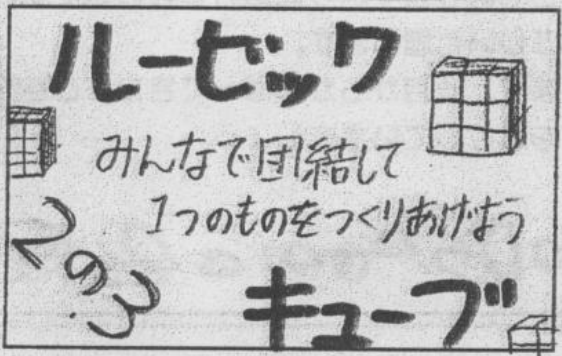 ルービック
みんなで団結して
1つのものをつくりあげよう
2の3
キューブ